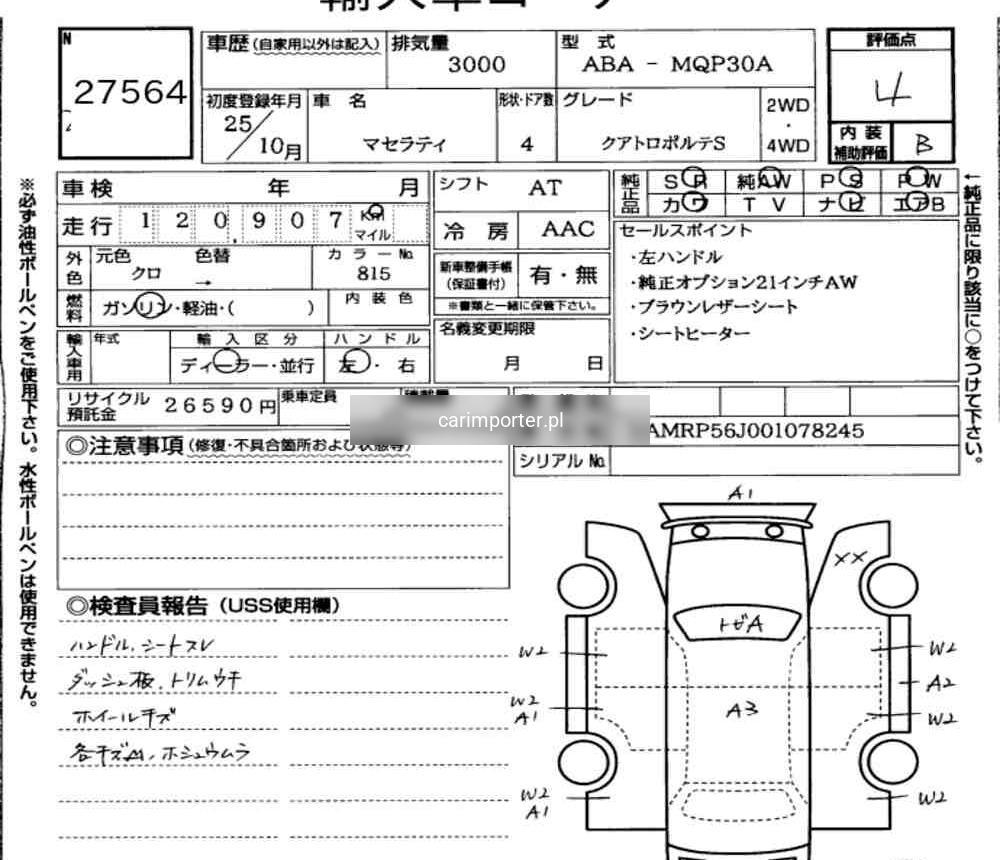 輸入車コーナー
N
27564
車歴(自家用以外は記入)
排気量
3000
型 式
ABA - MQP30A
評価点
4
初度登録年月
25/10月
車 名
マセラティ
形状・ドア数
4
グレード
クアトロポルテS
2WD
・
4WD
内 装
補助評価
B
車検 年 月
シフト AT
純正品
SR 純AW PS PW
カワ TV ナビ エアB
走行 120,907 Km
マイル
冷 房 AAC
外色
元色 色替
クロ →
カラーNo.
815
新車整備手帳
(保証書付)
有・無
※書類と一緒に保管下さい。
セールスポイント
・左ハンドル
・純正オプション21インチAW
・ブラウンレザーシート
・シートヒーター
燃料
ガソリン・軽油・( )
内 装 色
名義変更期限
月 日
輸入車用
年式
輸 入 区 分
ディーラー・並行
ハ ン ド ル
左・右
リサイクル
預託金
26590円
乗車定員
carimporter.pl
AMRP56J001078245
シリアルNo.
◎注意事項(修復・不具合箇所および状態等)
◎検査員報告(USS使用欄)
ハンドル、シートスレ
ダッシュ板、トリムウキ
ホイールキズ
各キズM、ホシュウムラ
A1
XX
トビA
W2
W2
A2
A3
W2
A1
W2
W2
A1
W2
※必ず油性ボールペンをご使用下さい。水性ボールペンは使用できません。
←純正品に限り該当に○をつけて下さい。